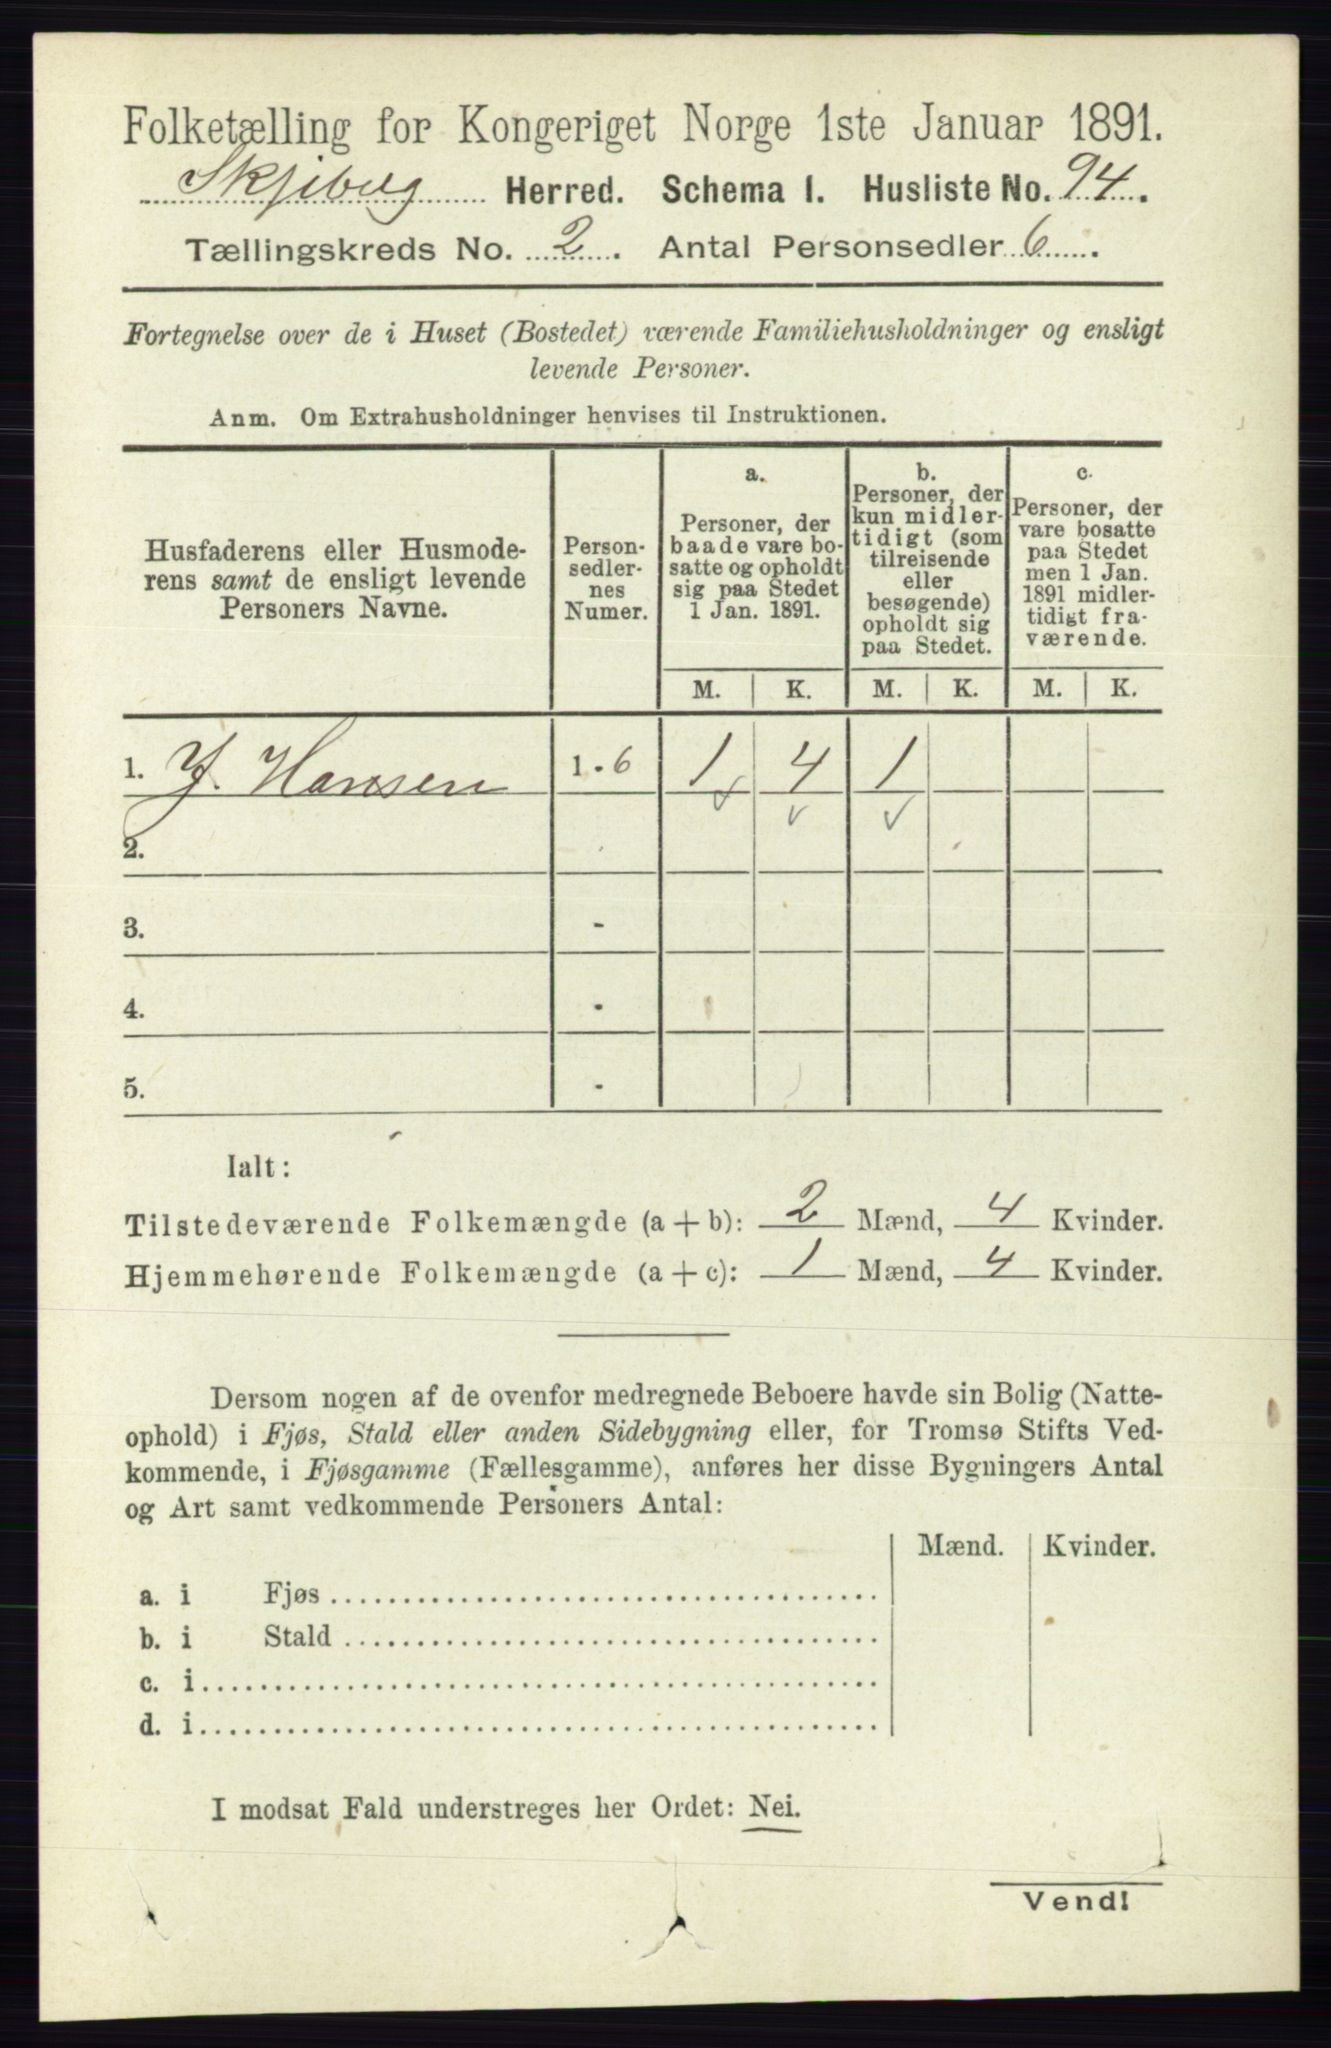 Folketælling for Kongeriget Norge 1ste Januar 1891.
Skjiberg Herred. Schema I. Husliste No. 94.
Tællingskreds No. 2. Antal Personsedler 6.
Fortegnelse over de i Huset (Bostedet) værende Familiehusholdninger og ensligt
levende Personer.
Anm. Om Extrahusholdninger henvises til Instruktionen.
Husfaderens eller Husmode-
rens samt de ensligt levende
Personers Navne.
Person-
sedler-
nes
Numer.
a.
Personer, der
baade vare bo-
satte og opholdt
sig paa Stedet
1 Jan. 1891.
b.
Personer, der
kun midler-
tidigt (som
tilreisende
eller
besøgende)
opholdt sig
paa Stedet.
c.
Personer, der
vare bosatte
paa Stedet
men 1 Jan.
1891 midler-
tidigt fra-
værende.
M. K. M. K. M. K.
1. J. Hansen 1 - 6 1 4 1
2.
3. -
4. -
5. -
Ialt:
Tilstedeværende Folkemængde (a + b): 2 Mænd, 4 Kvinder.
Hjemmehørende Folkemængde (a + c): 1 Mænd, 4 Kvinder.
Dersom nogen af de ovenfor medregnede Beboere havde sin Bolig (Natte-
ophold) i Fjøs, Stald eller anden Sidebygning eller, for Tromsø Stifts Ved-
kommende, i Fjøsgamme (Fællesgamme), anføres her disse Bygningers Antal
og Art samt vedkommende Personers Antal:
Mænd. Kvinder.
a. i Fjøs
b. i Stald
c. i
d. i
I modsat Fald understreges her Ordet: Nei.
Vend!